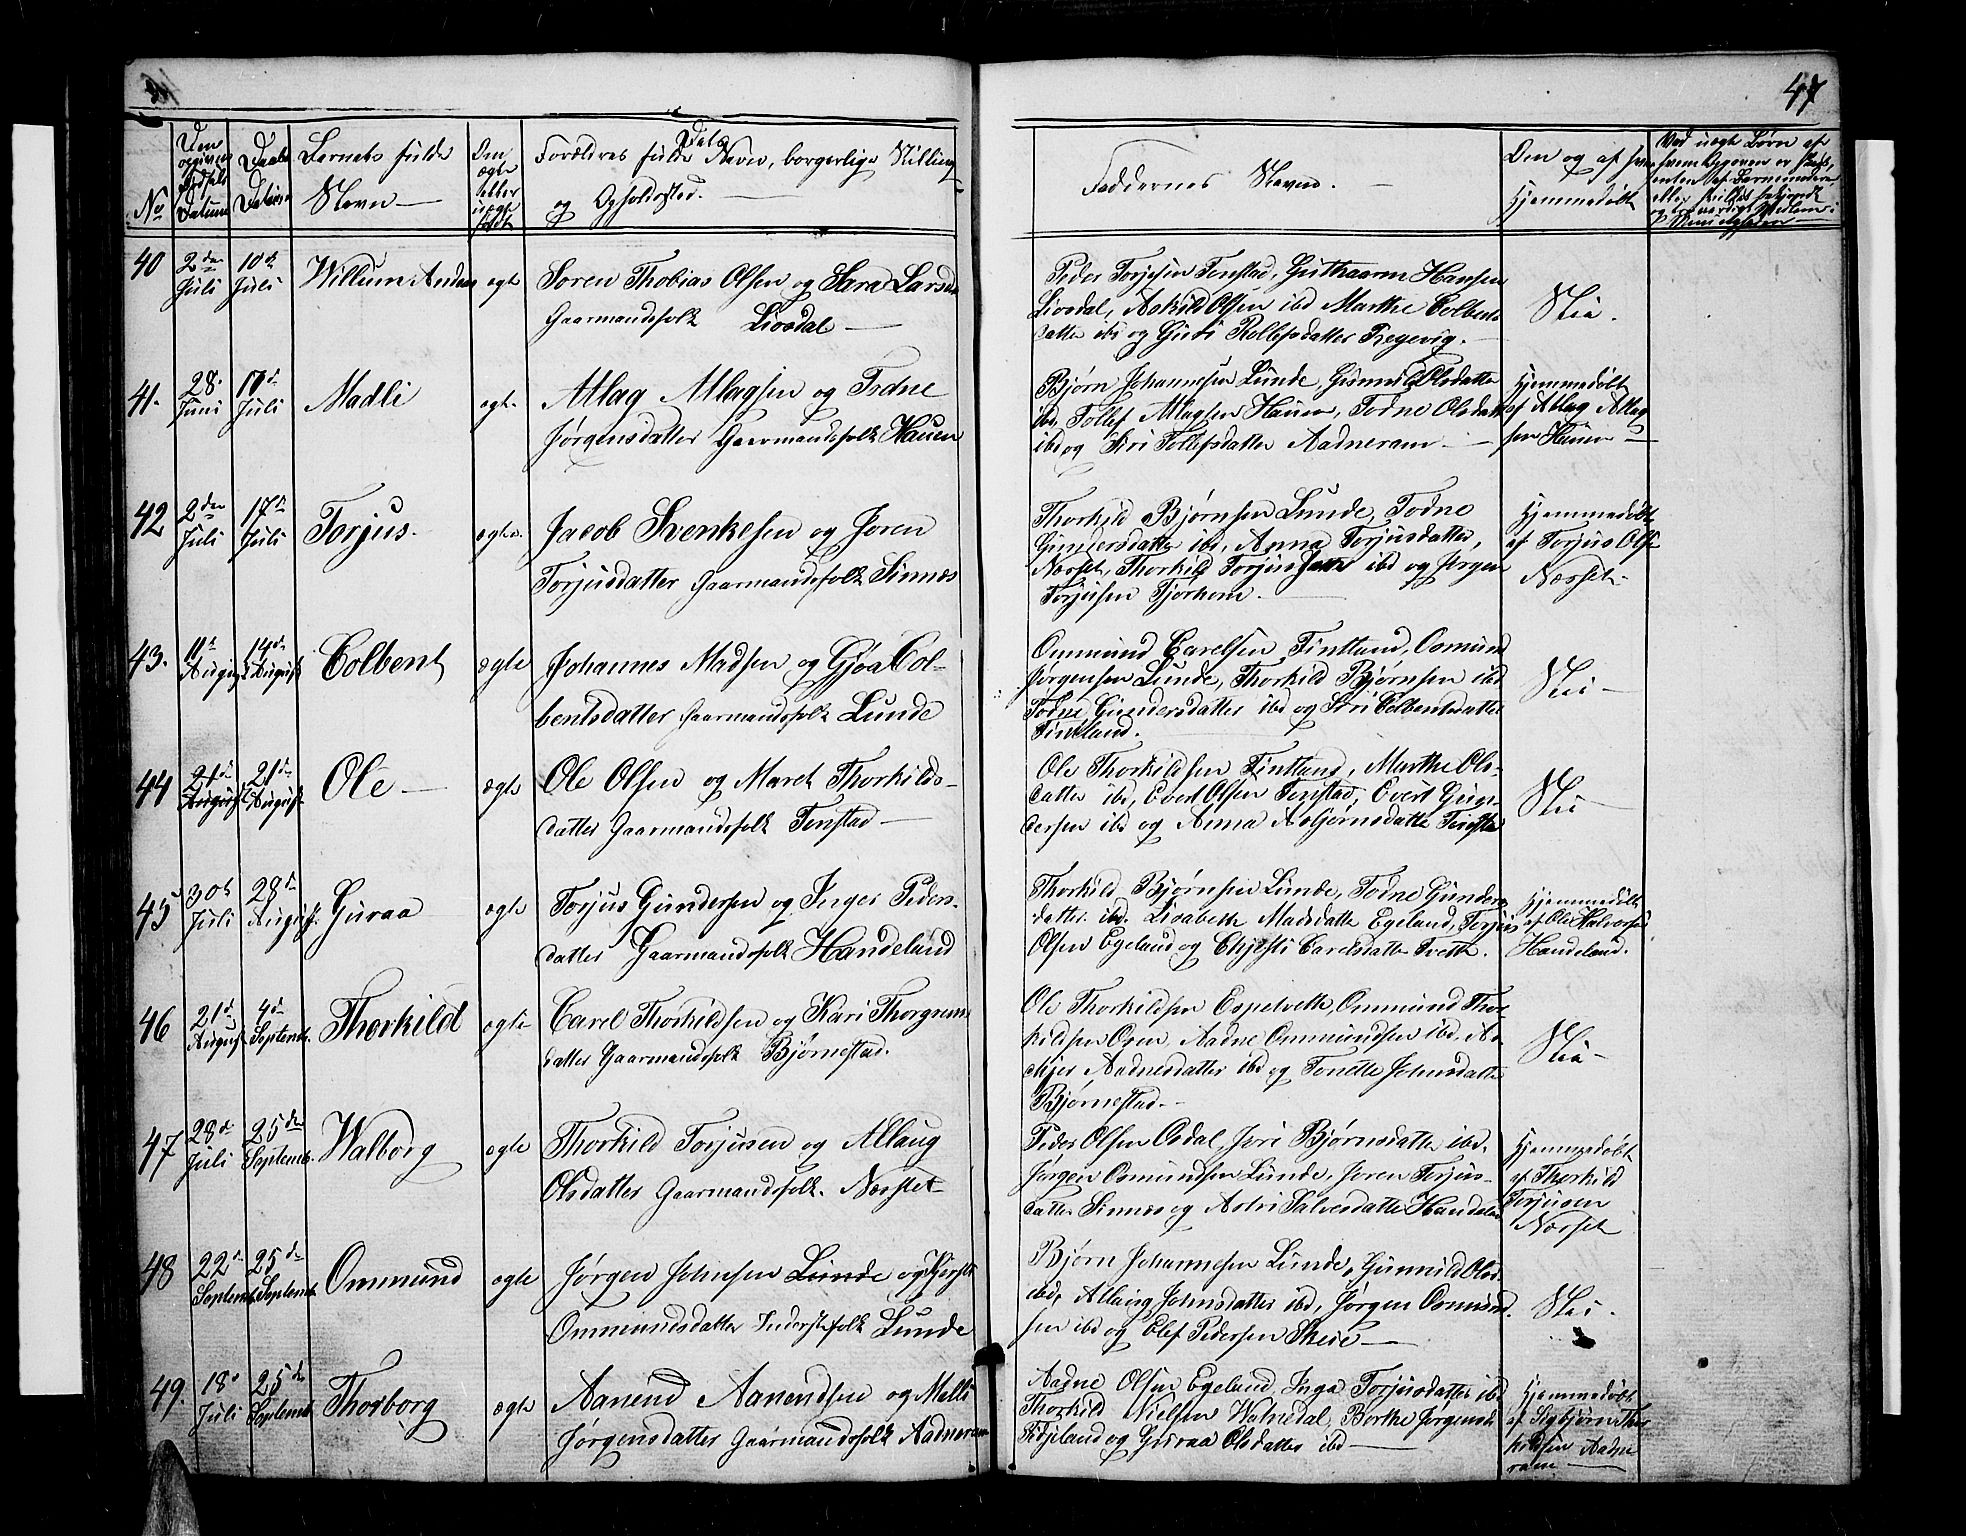 47
No
Den opgivne Fødsels Datum
Daabs Datum
Barnets fulde
Navn —
Om ægte eller uægte født
Forældres fulde Navn, borgerlige Stilling
og Opholdssted. —
Faddernes Navn. —
Om og af hvem
Hjemmedøbt
40 2den Juli 10de Juli Willum Andreas ægte Søren Thobias Olsen og Sara Larsd.
Gaarmandsfolk Liosdal —
Peder Torjesen Tonstad, Guthaarm Hansen
Liosdal, Askild Olsen ibd Marthe Colbents
datter ibd og Guri Rollefsdatter Fregevig. —
Nei.
41. 28. Juni 17d Juli Madli ægte Atlag Atlagsen og Todne
Jørgensdatter Gaarmandsfolk Hauen
Bjørn Johannesen Lunde, Gunnild Olsdatter
ibd, Tollef Atlagsen Hauen, Todne Olsdatt
ibd og Siri Tollefsdatter Aadneram —
Hjemmedøbt
af Atlag Atlag
sen Hauen —
42 2den Juli 17d Juli Torjus. ægte. Jacob Svenkesen og Joren
Torjusdatter Gaarmandsfolk Sinnes
Thorkild Bjørnsen Lunde, Todne
Gundersdatter ibd, Anna Torjusdatter,
Nerset, Thorkild Torjussen ibd og Jørgen
Torjusen Tjorhom. —
Hjemmedøbt
af Torjus Olsen
Nerset —
43. 11d August 14d August Colbent ægte Johannes Madsen og Gjøa Col-
bentsdatter Gaarmandsfolk Lunde
Ommund Carelsen Fintland, Osmund
Jørgensen Lunde, Thorkild Bjørnsen ibd
Todne Gundersdatter ibd og Siri Colbentsdatter
Fintland.
Nei —
44 21d August 21d August Ole — ægte Ole Olsen og Maret Thorkilds-
datter Gaarmandsfolk Tonstad —
Ole Thorkildsen Fintland, Marthe Ols-
datter ibd, Evert Olsen Tonstad, Evert Gun-
dersen ibd og Anna Asbjørnsdatter Tonstad
Nei —
45 30te Juli 28d August Guraa ægte Torjus Gundersen og Inger Peders-
datter Gaarmandsfolk Handeland
Thorkild Bjørnsen Lunde, Todne Gunders
datter ibd. Lisabeth Madsdatter Egeland, Torjus
Olsen Egeland og Chjesti Carelsdatter Tveth.
Hjemmedøbt
af Ole Halvorsen
Handeland.
46 21d August 4d Septemb. Thorkild ægte Carel Thorkildsen og Kari Thorgrims
datter Gaarmandsfolk Bjørnestad.
Ole Thorkildsen Espetveth, Ommund Thor-
kildsen Osen, Aadne Ommundsen ibd,
Aadnesdatter ibd og Tonette Johnsdatter
Bjørnestad. —
Nei —
47 28d Juli 25de Septemb. Walborg ægte Thorkild Torjusen og Atlaug
Olsdatter Gaarmandsfolk. Nerset
Peder Olsen Osdal, Siri Bjørnsdatter ibd.
Jørgen Osmundsen Lunde, Joren Torjus-
datter Sinnes og Astri Salvesdatter Handeland
Hjemmedøbt
af Thorkild
Torjusen
Nerset
48 22d Septemb. 25d Septemb. Ommund ægte Jørgen Johnsen Lunde og Kjersti
Ommundsdatter Inderstefolk Lunde
Bjørn Johannesen Lunde, Gunnild Olsd.
ibd, Atlaug Johnsdatter ibd, Jørgen Osmund
sen ibd og Elef Pedersen Skeie —
Nei.
49. 18. Juli 25d Septemb. Thorborg ægte Aanend Aanendsen og Malli
Jørgensdatter Gaarmandsfolk Aadneram
Aadne Olsen Egeland, Inga Torjusdatter ibd
Thorkild Nielsen Watnedal, Borthe Jørgensd.
Fidjeland og Guraa Olsdatter ibd —
Hjemmedøbt
af Sigbjørn Thor
kildsen Aadne
ram —